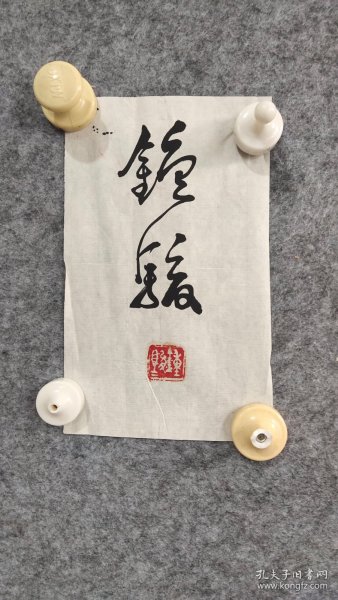 鍾駿
孔夫子旧书网
www.kongfz.com